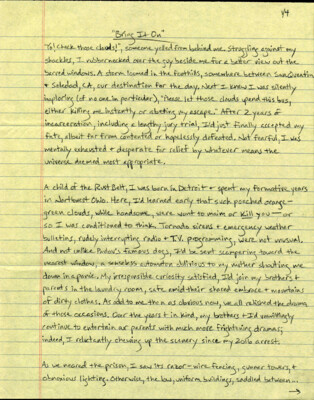 14
"Bring It On"
"Yo! Check those clouds!", someone yelled from behind me. Struggling against my
shackles, I rubbernecked over the guy beside me for a better view out the
barred windows. A storm loomed in the foothills, somewhere between San Quentin
& Soledad, CA, our destination for the day. Next I knew I was silently
imploring (of no one in particular), "Please let those clouds upend this bus,
either killing me instantly or abetting my escape." After 2 years of
incarceration, including a lengthy jury trial, I'd just finally accepted my
fate, albeit far from contented or hopelessly defeated. Not fearful, I was
mentally exhausted & desperate for relief by whatever means the
universe deemed most appropriate.
A child of the Rust Belt, I was born in Detroit & spent my formative years
in Northwest Ohio. Here, I'd learned early that such peached orange-
green clouds, while handsome, were want to maim or kill you — or
so I was conditioned to think. Tornado sirens & emergency weather
bulletins, rudely interrupting radio & T.V. programming, were not unusual.
And not unlike Pavlov's famous dogs, I'd be sent scampering toward the
nearest window, a senseless automaton oblivious to my mother shouting me
down in panic. My irresponsible curiosity satisfied, I'd join my brothers &
parents in the laundry room, safe amid their shared embrace & mountains
of dirty clothes. As odd to me then as obvious now, we all relished the drama
of those occasions. Over the years & in kind, my brothers & I'd unwillingly
continue to entertain our parents with much more frightening dramas;
indeed, I reluctantly chewing up the scenery since my 2016 arrest.
As we neared the prison, I saw its razor-wire fencing, gunner towers, &
obnoxious lighting. Otherwise, the low, uniform buildings, saddled between...
→